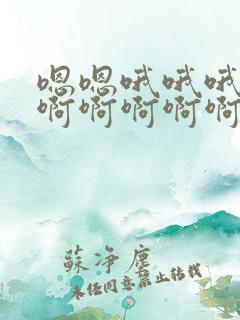 嗯嗯哦哦哦
啊啊啊啊啊
蘇淨塵
未经同意禁止转载